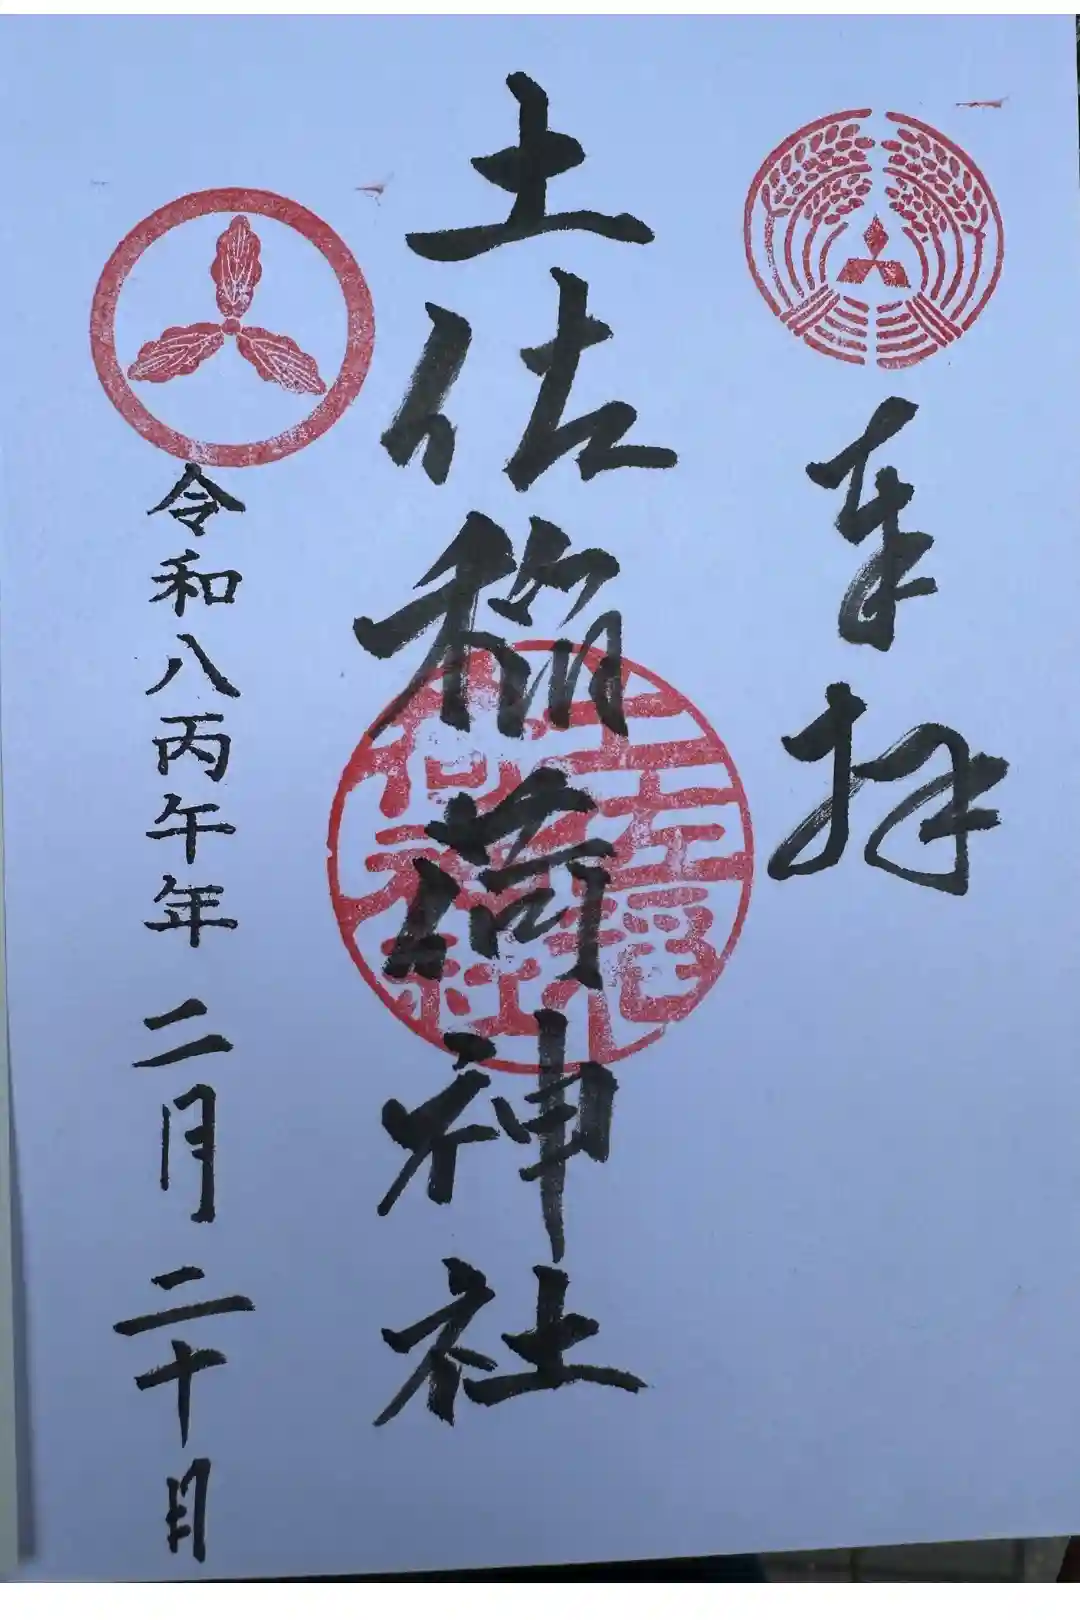 奉拝
土佐稲荷神社
土佐稲荷神社
令和八丙午年 二月 二十日